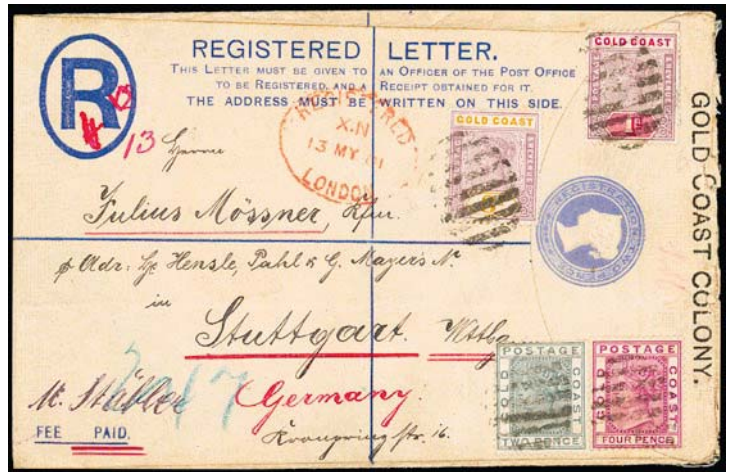 REGISTERED LETTER.
THIS LETTER MUST BE GIVEN TO AN OFFICER OF THE POST OFFICE
TO BE REGISTERED, AND A RECEIPT OBTAINED FOR IT.
THE ADDRESS MUST BE WRITTEN ON THIS SIDE.
R
13
REGISTERED
X.N
13 MY 01
LONDON
GOLD COAST
POSTAGE
REVENUE
GOLD COAST
POSTAGE
REVENUE
1d
GOLD COAST COLONY.
REGISTRATION TWO PENCE
Herrn
Julius Mössner, Kfm.
p Adr: Hensle, Pahl & G. Mayer's N.
in
Stuttgart.
Germany.
Kronprinzstr. 16.
FEE PAID.
POSTAGE
GOLD COAST
TWO PENCE
POSTAGE
GOLD COAST
FOUR PENCE